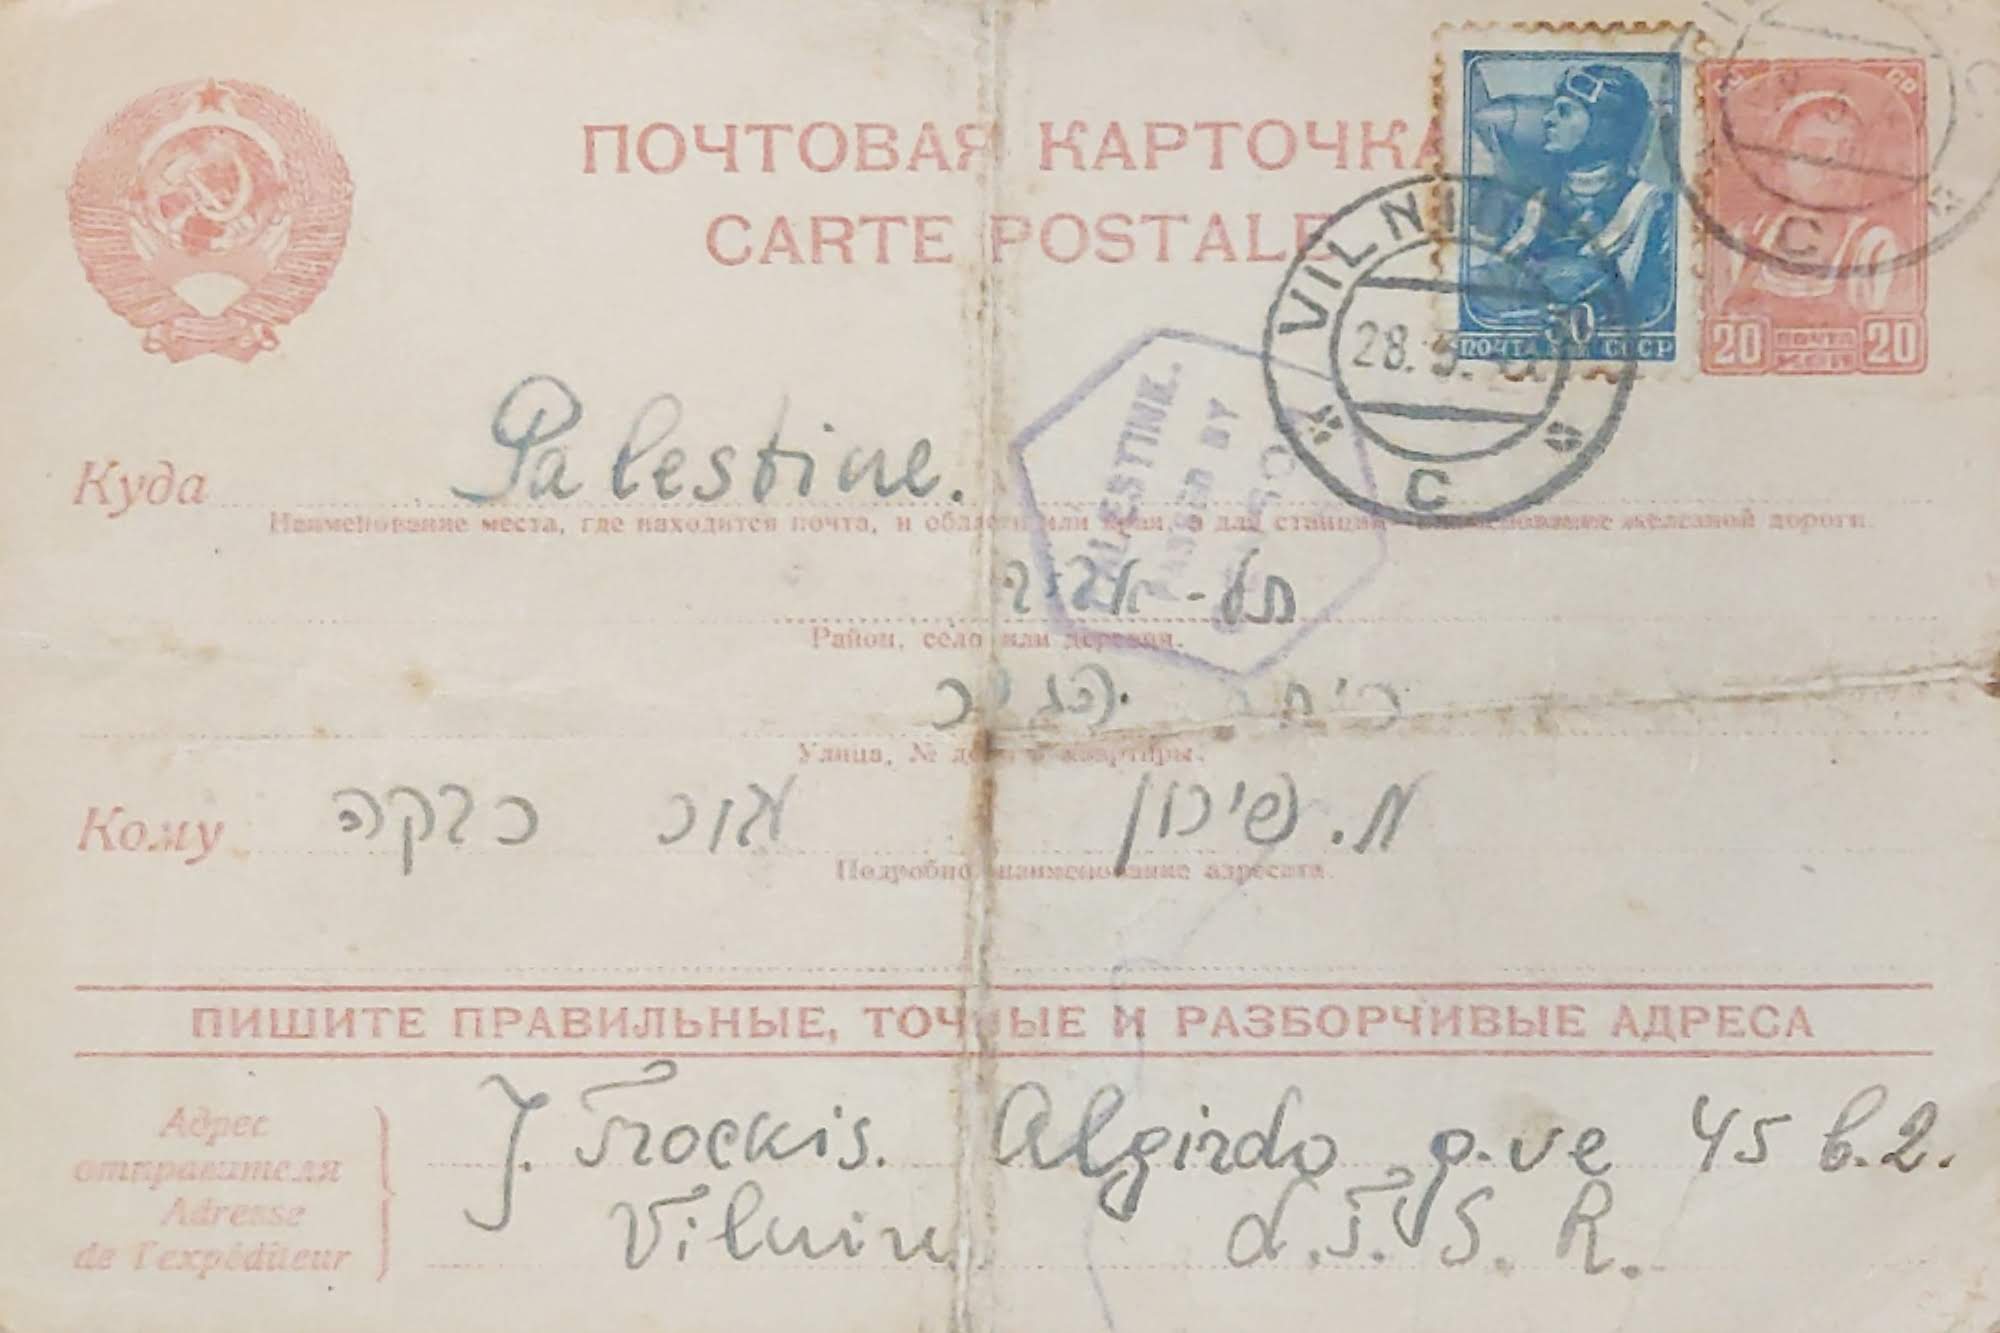 ПОЧТОВАЯ КАРТОЧКА
CARTE POSTALE
VILNIUS
28. 5.
C
C
30
ПОЧТА СССР
20 ПОЧТА 20
PALESTINE.
PASSED BY
Куда Palestine.
Наименование места, где находится почта, и области или края, а для станций наименование железной дороги.
תל-אביב
Район, село или деревня.
Улица, № дома и квартиры.
Кому
מ. שיכון
עבור רבקה
Подробно наименование адресата
ПИШИТЕ ПРАВИЛЬНЫЕ, ТОЧНЫЕ И РАЗБОРЧИВЫЕ АДРЕСА
Адрес
отправителя
Adresse
de l'expéditeur
J. Trockis. Algirdo g-ve 45 b.2.
Vilnius L.T.S.R.